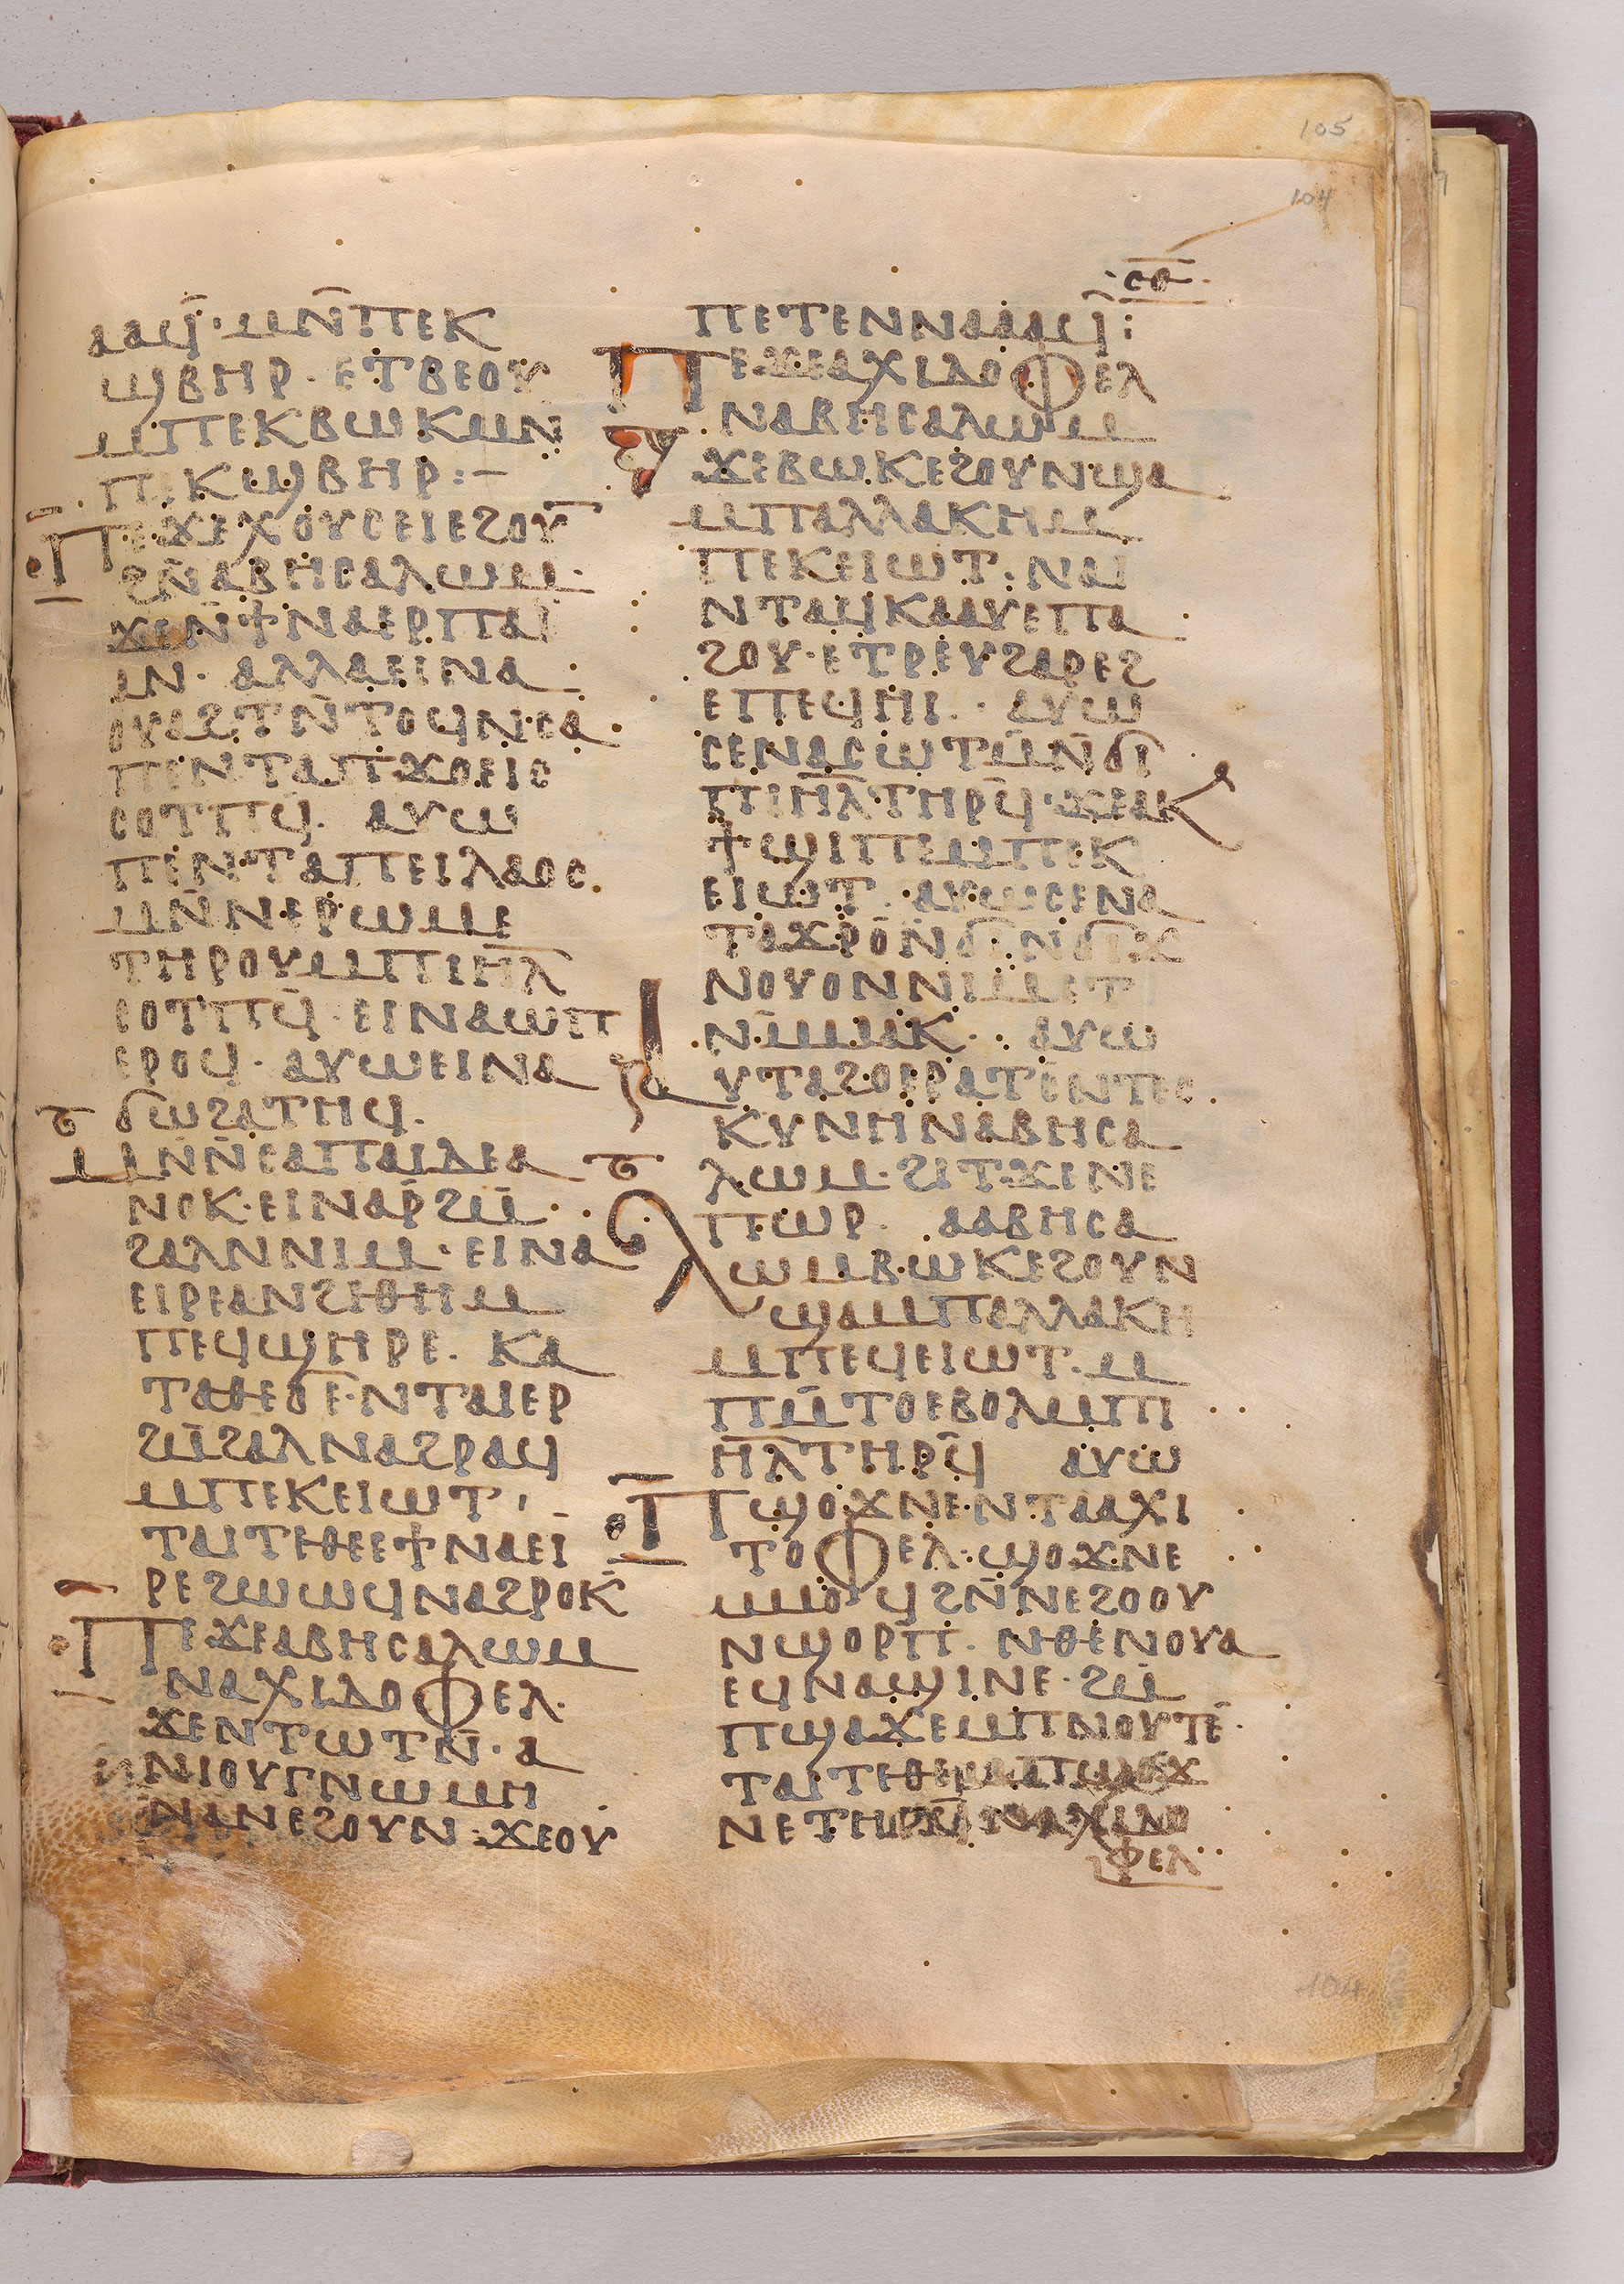 105
104
ⲥⲃ
ⲁⲁϥ̄·ⲙⲛ̄ⲡⲉⲕ
ϣⲃⲏⲣ·ⲉⲧⲃⲉⲟⲩ
ⲙⲡⲉⲕⲃⲱⲕⲙⲛ
ⲡⲕϣⲃⲏⲣ:–
ⲡⲉϫⲉⲭⲟⲩⲥⲉⲓⲉϩⲟⲩ̄
ϩⲛ̄ⲁⲃⲏⲥⲁⲗⲱⲙ·
ϫⲉⲛ̄ϯⲛⲁⲉⲣⲡⲁⲓ
ⲁⲛ·ⲁⲗⲗⲁⲉⲓⲛⲁ
ⲟⲩⲁϩⲧⲛ̄ⲧⲟϥⲛⲥⲁ
ⲡⲉⲛⲧⲁⲡϫⲟⲉⲓⲥ
ⲥⲟⲧⲡϥ̄· ⲁⲩⲱ
ⲡⲉⲛⲧⲁⲡⲉⲓⲗⲁⲟⲥ·
ⲙⲛ̄ⲛⲉⲣⲱⲙⲉ
ⲧⲏⲣⲟⲩⲙⲡⲓⲏ̄ⲗ̄
ⲥⲟⲧⲡϥ̄·ⲉⲓⲛⲁϣⲡ
ⲉⲣⲟϥ·ⲁⲩⲱⲉⲓⲛⲁ
ϭⲱϩⲁⲧⲏϥ.
ⲙⲛ̄ⲛ̄ⲥⲁⲡⲁⲓⲇⲉⲁ
ⲛⲟⲕ·ⲉⲓⲛⲁⲣ̄ϩⲙ̄
ϩⲁⲗⲛⲛⲓⲙ·ⲉⲓⲛⲁ
ⲉⲓⲣⲉⲁⲛϩⲓⲑⲏⲙ
ⲡⲉϥϣⲏⲣⲉ. ⲕⲁ
ⲧⲁⲑⲉϭⲉ·ⲛⲧⲁⲓⲉⲣ
ϩⲙ̄ϩⲁⲗⲛⲁϩⲣⲁϥ
ⲙⲡⲉⲕⲉⲓⲱⲧ,
ⲧⲁⲓⲧⲉⲑⲉⲉϯⲛⲁⲉⲓ̄
ⲣⲉϩⲱⲱϥⲛⲁϩⲣⲟⲕ̄
ⲡⲉϫⲉⲁⲃⲏⲥⲁⲗⲱⲙ
ⲛⲁⲭⲓⲇⲟⲫⲉⲗ·
ϫⲉⲛⲧⲱⲧⲛ̄·ⲁ
ⲛⲓⲟⲩⲅⲛⲱⲙⲏ
ⲛⲁⲛⲉϩⲟⲩⲛ·ϫⲉⲟⲩ
ⲡⲉⲧⲉⲛⲛⲁⲁⲁϥ̄:
ⲡⲉϫⲉⲁⲭⲓⲇⲟⲫⲉⲗ
ⲛⲁⲃⲏⲥⲁⲗⲱⲙ
ϫⲉⲃⲱⲕⲉϩⲟⲩⲛϣⲁ
ⲙⲡⲁⲗⲗⲁⲕⲏⲙ
ⲡⲉⲕⲉⲓⲱⲧ·ⲛⲁⲓ
ⲛⲧⲁϥⲕⲁⲁⲩⲉⲡⲁ
ϩⲟⲩ·ⲉⲧⲣⲉⲩϩⲁⲣⲉϩ
ⲉⲡⲉϥⲏⲓ· ⲁⲩⲱ
ⲥⲉⲛⲁⲥⲱⲧⲙ̄ⲛ̄ϭⲓ
ⲡⲓⲏ̄ⲗ̄ⲧⲏⲣϥ̄·ϫⲉⲁⲕ
ϯϣⲓⲡⲉⲙⲡⲉⲕ
ⲉⲓⲱⲧ·ⲁⲩⲱⲥⲉⲛⲁ
ⲧⲁϫⲣⲟ̄ⲛϭⲓⲛϭⲓϫ
ⲛⲟⲩⲟⲛⲛⲓⲙⲉⲧ
ⲛ̄ⲙⲙⲁⲕ· ⲁⲩⲱ
ⲁⲩⲧⲁϩⲟⲉⲣⲁⲧⲉⲛⲧⲉⲥ
ⲕⲩⲛⲏⲛⲁⲃⲏⲥⲁ
ⲗⲱⲙ·ϩⲓⲧϫⲉⲛⲉ
ⲡⲱⲣ· ⲁⲁⲃⲏⲥⲁ
ⲗⲱⲙⲃⲱⲕⲉϩⲟⲩⲛ
ϣⲁⲙⲡⲁⲗⲗⲁⲕⲏ
ⲙⲡⲉϥⲉⲓⲱⲧ·ⲙ
ⲡⲙ̄ⲧⲟⲉⲃⲟⲗⲙⲡⲓ
ⲏ̄ⲗ̄ⲧⲏⲣϥ̄ ⲁⲩⲱ
ⲡϣⲟϫⲛⲉ·ⲛⲧⲁⲁⲭⲓ
ⲧⲟⲫⲉⲗ·ϣⲟϫⲛⲉ
ⲙⲙⲟϥϩⲛ̄ⲛⲉϩⲟⲟⲩ
ⲛϣⲟⲣⲡ̄· ⲛⲑⲉⲛⲟⲩⲁ
ⲉϥⲛⲁϣⲓⲛⲉ·ϩⲙ̄
ⲡϣⲁϫⲉⲙⲡⲛⲟⲩⲧⲉ·
ⲧⲁⲓⲧⲉⲑⲉ
ⲛⲉⲧⲏⲣϥ̄ⲛⲁⲭⲓⲇⲟ
ⲫⲉⲗ
104